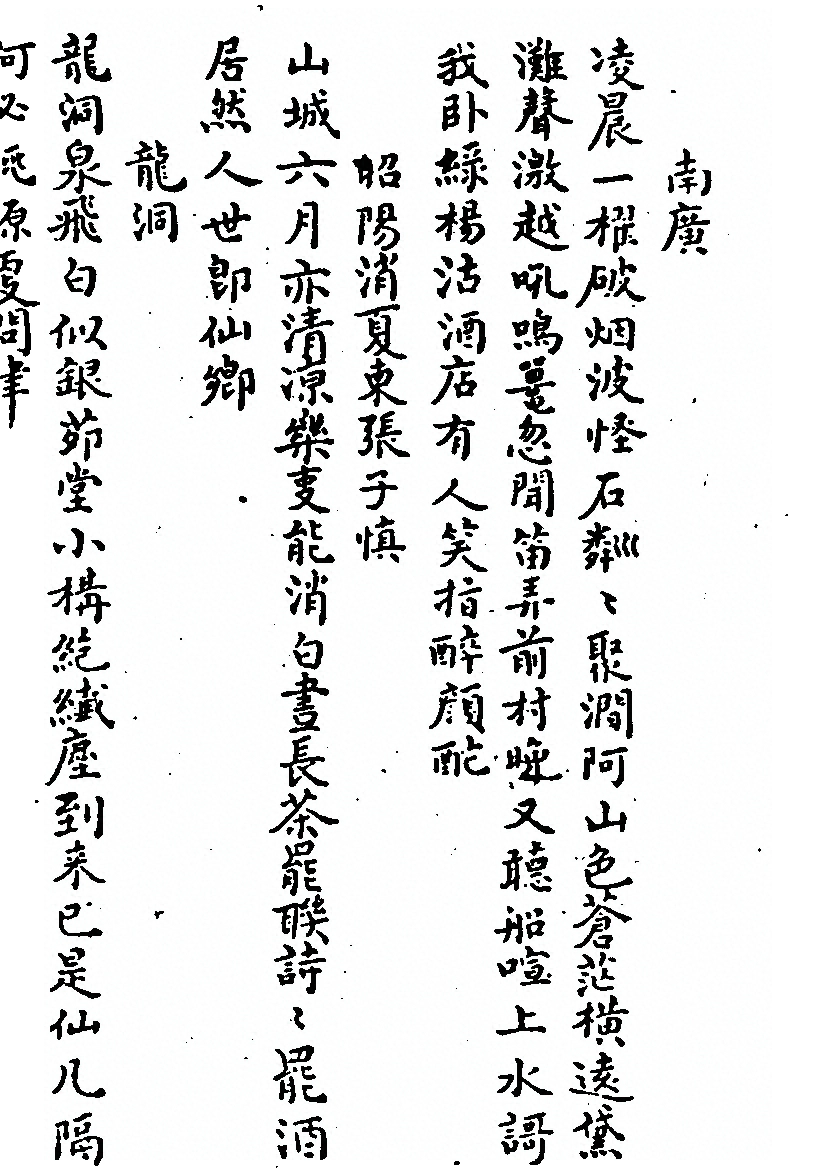 南廣
凌晨一櫂破烟波怪石粼〻聚澗阿山色蒼茫橫遠黛
灘聲激越吼鳴鼉忽聞笛弄前村晚又聽船喧上水謌
我卧綠楊沽酒店有人笑指醉顔酡
昭陽消夏東張子慎
山城六月亦清凉樂叓能消白晝長茶罷聯詩〻罷酒
居然人世即仙鄉
龍洞
龍洞泉飛白似銀茆堂小構絶纖塵到来已是仙凡隔
何必桃源更問津